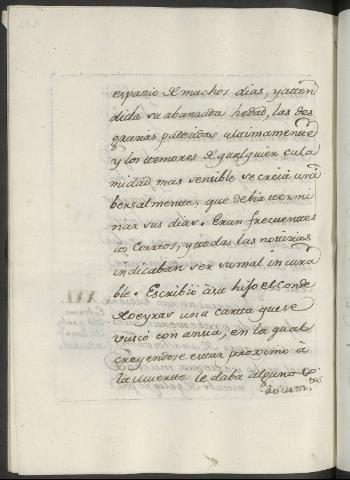 espazio de muchos dias, y atten
dida su abanzada hedad, las des
gracias padezidas ultimamente
y los temores de qualquier cala
midad mas sensible se creia uni
bersalmente, que debia termi
nar sus dias. Eran frecuentes
los correos, y todas las noticias
indicaban ser su mal incura
ble. Escribió a su hijo el Conde
de Oeyras una carta que se
vuscó con ansia, en la qual
creyendose estar proximo à
la muerte le daba algunos